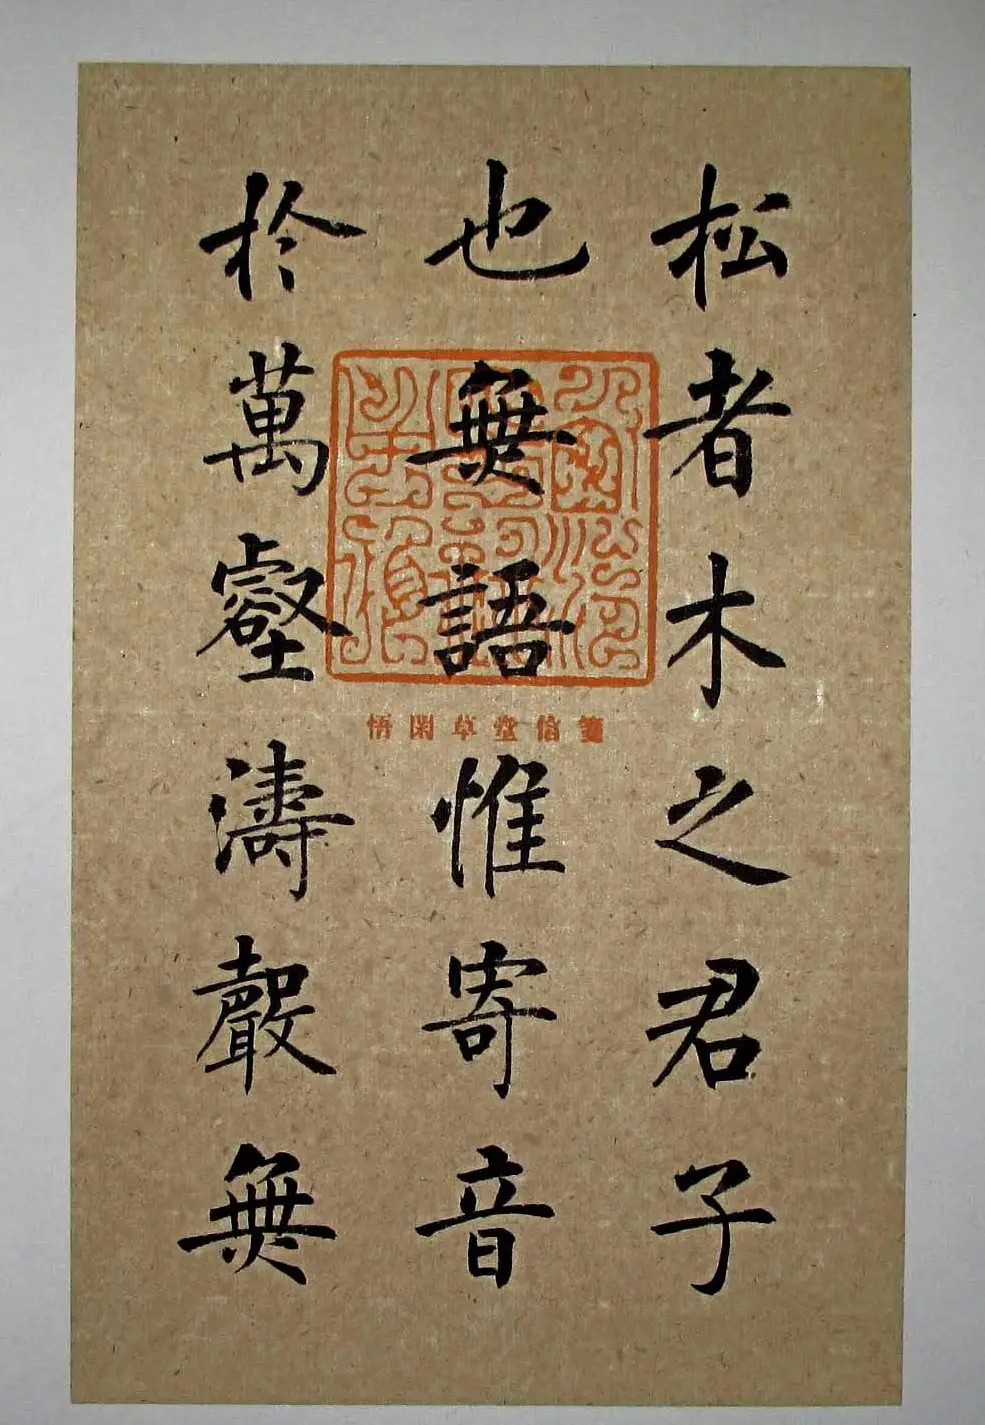 松者木之君子
也無語惟寄音
於萬壑濤聲無
悟閑草堂信箋